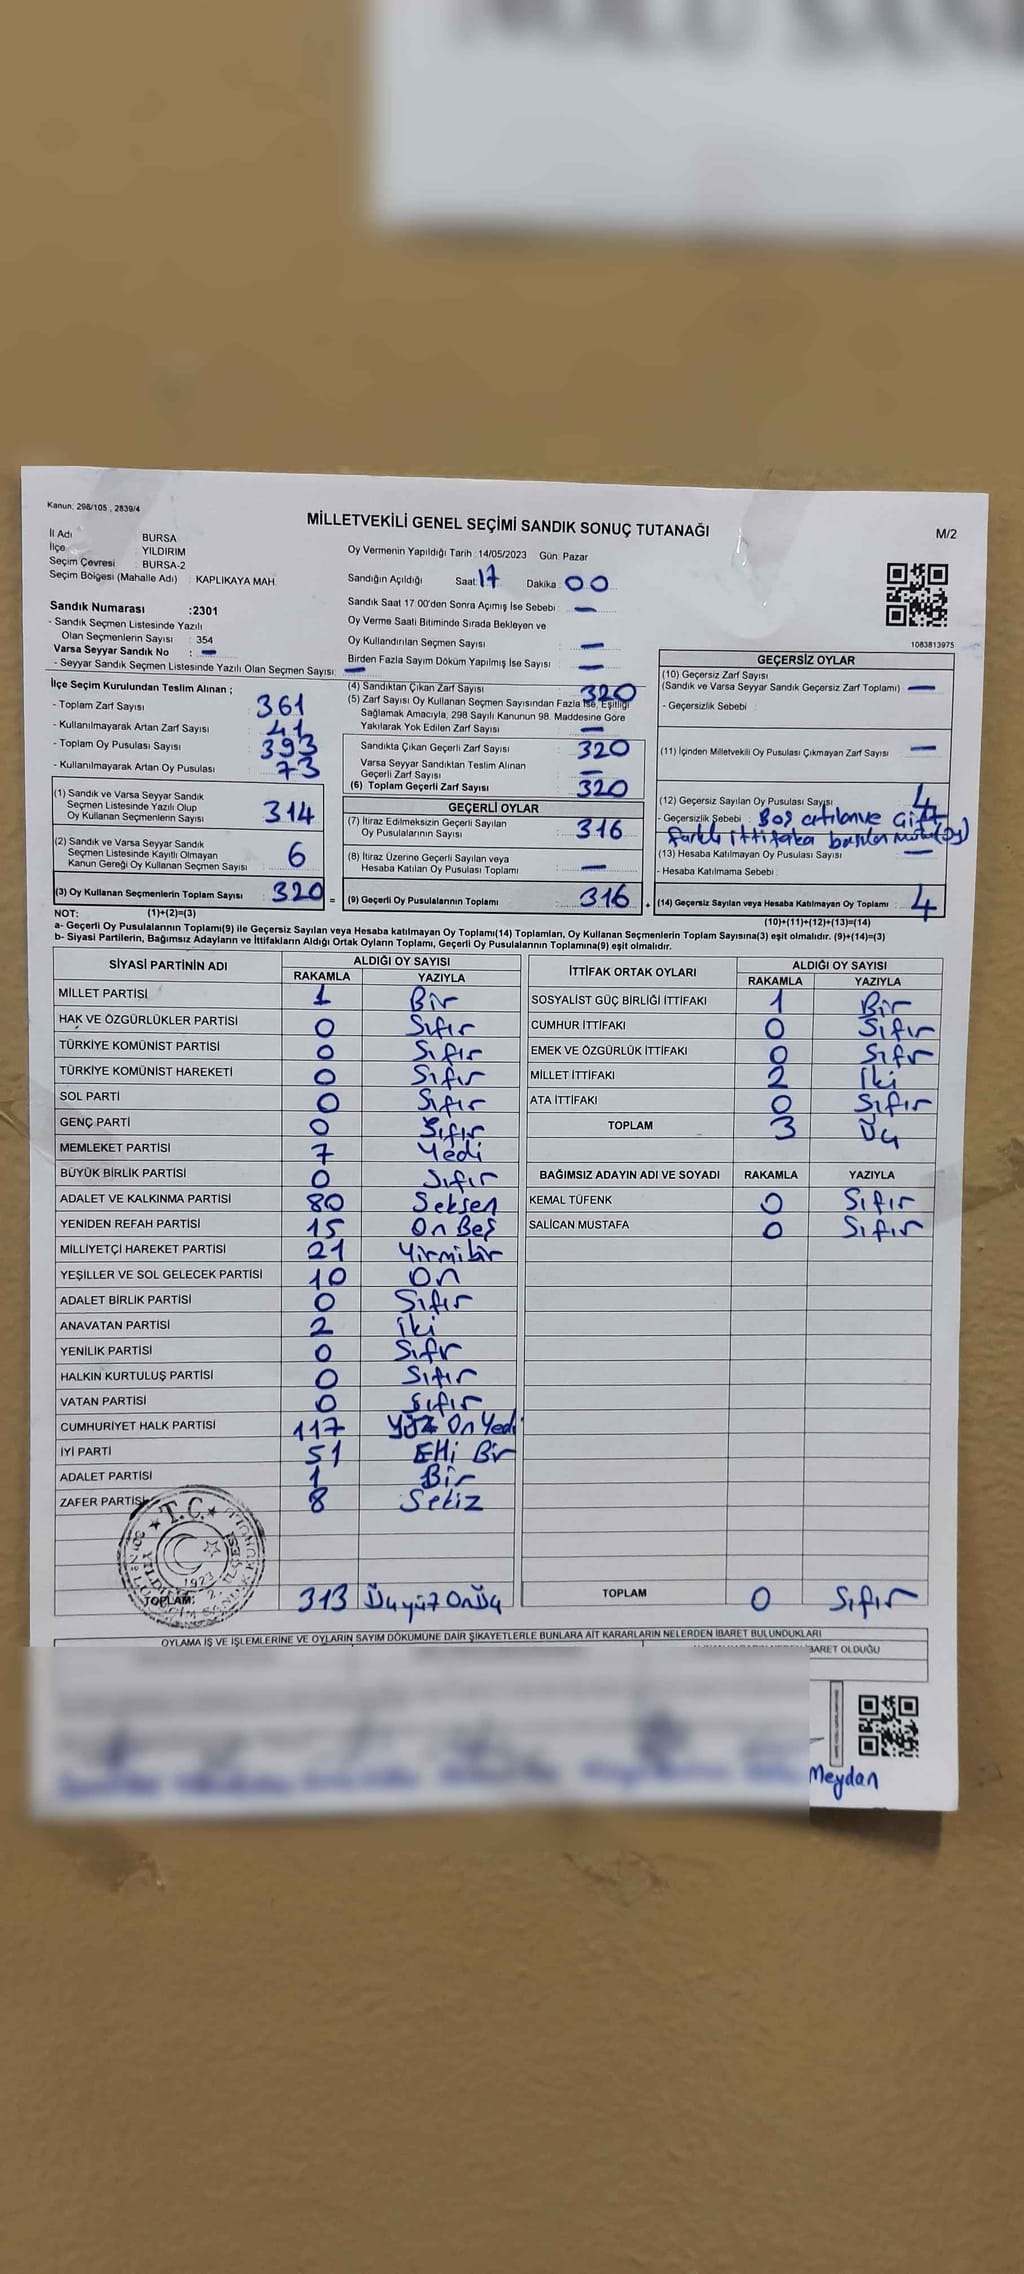 Kanun, 298/105 , 2839/4
MİLLETVEKİLİ GENEL SEÇİMİ SANDIK SONUÇ TUTANAĞI
M/2
İl Adı : BURSA
İlçe : YILDIRIM
Seçim Çevresi : BURSA-2
Seçim Bölgesi (Mahalle Adı) : KAPLIKAYA MAH.
Sandık Numarası :2301
- Sandık Seçmen Listesinde Yazılı
Olan Seçmenlerin Sayısı : 354
Varsa Seyyar Sandık No : –
- Seyyar Sandık Seçmen Listesinde Yazılı Olan Seçmen Sayısı: –
Oy Vermenin Yapıldığı Tarih :14/05/2023 Gün: Pazar
Sandığın Açıldığı Saat: 17 Dakika : 00
Sandık Saat 17:00'den Sonra Açımış İse Sebebi : –
Oy Verme Saati Bitiminde Sırada Bekleyen ve
Oy Kullandırılan Seçmen Sayısı : –
Birden Fazla Sayım Döküm Yapılmış İse Sayısı : –
1083813975
İlçe Seçim Kurulundan Teslim Alınan ;
- Toplam Zarf Sayısı : 361
- Kullanılmayarak Artan Zarf Sayısı : 41
- Toplam Oy Pusulası Sayısı : 393
- Kullanılmayarak Artan Oy Pusulası : 73
(1) Sandık ve Varsa Seyyar Sandık
Seçmen Listesinde Yazılı Olup
Oy Kullanan Seçmenlerin Sayısı : 314
(2) Sandık ve Varsa Seyyar Sandık
Seçmen Listesinde Kayıtlı Olmayan
Kanun Gereği Oy Kullanan Seçmen Sayısı : 6
(3) Oy Kullanan Seçmenlerin Toplam Sayısı : 320 =
(4) Sandıktan Çıkan Zarf Sayısı : 320
(5) Zarf Sayısı Oy Kullanan Seçmen Sayısından Fazla İse, Eşitliği
Sağlamak Amacıyla, 298 Sayılı Kanunun 98. Maddesine Göre
Yakılarak Yok Edilen Zarf Sayısı : –
Sandıkta Çıkan Geçerli Zarf Sayısı : 320
Varsa Seyyar Sandıktan Teslim Alınan
Geçerli Zarf Sayısı : –
(6) Toplam Geçerli Zarf Sayısı : 320
GEÇERLİ OYLAR
(7) İtiraz Edilmeksizin Geçerli Sayılan
Oy Pusulalarının Sayısı : 316
(8) İtiraz Üzerine Geçerli Sayılan veya
Hesaba Katılan Oy Pusulası Toplamı : –
(9) Geçerli Oy Pusulasının Toplamı : 316 +
GEÇERSİZ OYLAR
(10) Geçersiz Zarf Sayısı
(Sandık ve Varsa Seyyar Sandık Geçersiz Zarf Toplamı) : –
- Geçersizlik Sebebi :
(11) İçinden Milletvekili Oy Pusulası Çıkmayan Zarf Sayısı : –
(12) Geçersiz Sayılan Oy Pusulası Sayısı : 4
- Geçersizlik Sebebi : Boş atılan ve Çift
farklı ittifaka
(13) Hesaba Katılmayan Oy Pusulası Sayısı : –
- Hesaba Katılmama Sebebi :
(14) Geçersiz Sayılan veya Hesaba Katılmayan Oy Toplamı : 4
NOT: (1)+(2)=(3) (10)+(11)+(12)+(13)=(14)
a- Geçerli Oy Pusulalarının Toplamı(9) ile Geçersiz Sayılan veya Hesaba katılmayan Oy Toplamı(14) Toplamları, Oy Kullanan Seçmenlerin Toplam Sayısına(3) eşit olmalıdır. (9)+(14)=(3)
b- Siyasi Partilerin, Bağımsız Adayların ve İttifakların Aldığı Ortak Oyların Toplamı, Geçerli Oy Pusulalarının Toplamına(9) eşit olmalıdır.
SİYASİ PARTİNİN ADI ALDIĞI OY SAYISI
RAKAMLA YAZIYLA
MİLLET PARTİSİ 1 Bir
HAK VE ÖZGÜRLÜKLER PARTİSİ 0 Sıfır
TÜRKİYE KOMÜNİST PARTİSİ 0 Sıfır
TÜRKİYE KOMÜNİST HAREKETİ 0 Sıfır
SOL PARTİ 0 Sıfır
GENÇ PARTİ 0 Sıfır
MEMLEKET PARTİSİ 7 Yedi
BÜYÜK BİRLİK PARTİSİ 0 Sıfır
ADALET VE KALKINMA PARTİSİ 80 Seksen
YENİDEN REFAH PARTİSİ 15 On Beş
MİLLİYETÇİ HAREKET PARTİSİ 21 Yirmibir
YEŞİLLER VE SOL GELECEK PARTİSİ 10 On
ADALET BİRLİK PARTİSİ 0 Sıfır
ANAVATAN PARTİSİ 2 İki
YENİLİK PARTİSİ 0 Sıfr
HALKIN KURTULUŞ PARTİSİ 0 Sıfır
VATAN PARTİSİ 0 Sıfır
CUMHURİYET HALK PARTİSİ 117 Yüz On Yedi
İYİ PARTİ 51 Elli Bir
ADALET PARTİSİ 1 Bir
ZAFER PARTİSİ 8 Sekiz
T.C.
1923
TOPLAM: 313 Üçyüz OnÜç
İTTİFAK ORTAK OYLARI ALDIĞI OY SAYISI
RAKAMLA YAZIYLA
SOSYALİST GÜÇ BİRLİĞİ İTTİFAKI 1 Bir
CUMHUR İTTİFAKI 0 Sıfır
EMEK VE ÖZGÜRLÜK İTTİFAKI 0 Sıfır
MİLLET İTTİFAKI 2 İki
ATA İTTİFAKI 0 Sıfır
TOPLAM 3 Üç
BAĞIMSIZ ADAYIN ADI VE SOYADI RAKAMLA YAZIYLA
KEMAL TÜFENK 0 Sıfır
SALİCAN MUSTAFA 0 Sıfır
TOPLAM 0 Sıfır
OYLAMA İŞ VE İŞLEMLERİNE VE OYLARIN SAYIM DÖKÜMÜNE DAİR ŞİKAYETLERLE BUNLARA AİT KARARLARIN NELERDEN İBARET BULUNDUKLARI
İBARET OLDUĞU
Meydan